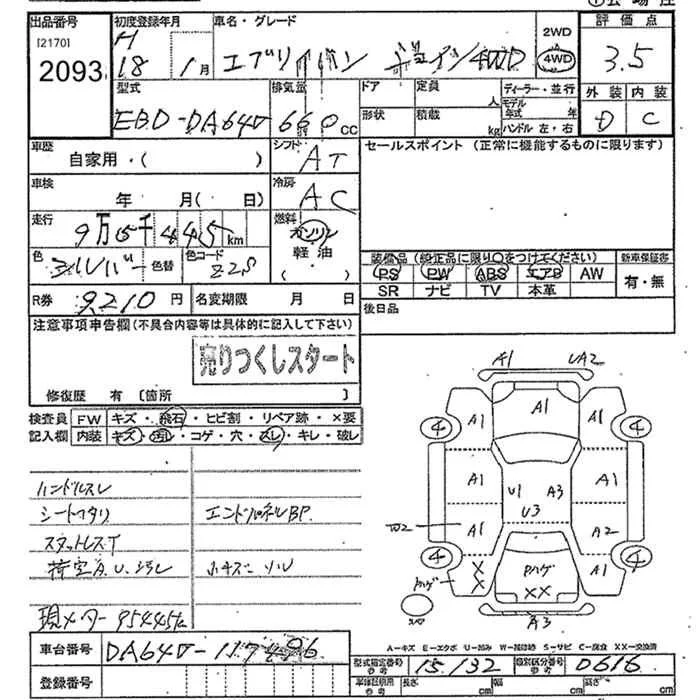 出品番号
[2170]
2093
初度登録年月
H
18 1月
車名・グレード
エブリイバン ジョイン 4WD
2WD
4WD
評価点
3.5
型式
EBD-DA64V
排気量
660cc
ドア 定員 人
形状 積載 kg
ディーラー・並行
モデル年式 年
ハンドル 左・右
外装 内装
D C
車歴
自家用・( )
シフト
AT
セールスポイント (正常に機能するものに限ります)
車検
年 月( 日)
冷房
AC
走行
9万5千445km
燃料
ガソリン
軽油
( )
色
シルバー
色替
色コード
Z2S
装備品 (純正品に限り○をつけてください)
PS PW ABS エアB AW
SR ナビ TV 本革
新車保証書
有・無
R券 9210円
名変期限 月 日
後日品
注意事項申告欄(不具合内容等は具体的に記入して下さい)
売りつくしスタート
修復歴 有 [箇所 ]
検査員
記入欄
FW キズ・飛石・ヒビ割・リペア跡・×要
内装 キズ・汚れ・コゲ・穴・スレ・キレ・破レ
ハンドルスレ
シートヘタリ
エンドパネルBP.
スタットレスT
現メーター 95445km
A1 UA2
A1 A1 A1
4 4
A1 A1
U1 A3
U3
A1 A2
4 4
X
X
ハゲ
ハゲ
XX
A1
A3
A-キズ E-エクボ U-凹み W-補修跡 S-サビ C-腐食 XX-交換済
車台番号 DA64V-117496
登録番号
型式指定番号
参考
15132
類別区分番号
参考
0616
車体証明用
参考
長さ cm 幅 cm 高さ cm